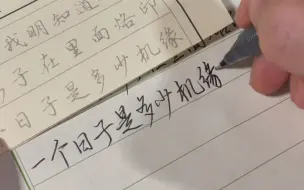 我明知道
子在里面烙印
日子是多少机缘
一个日子是多少机缘